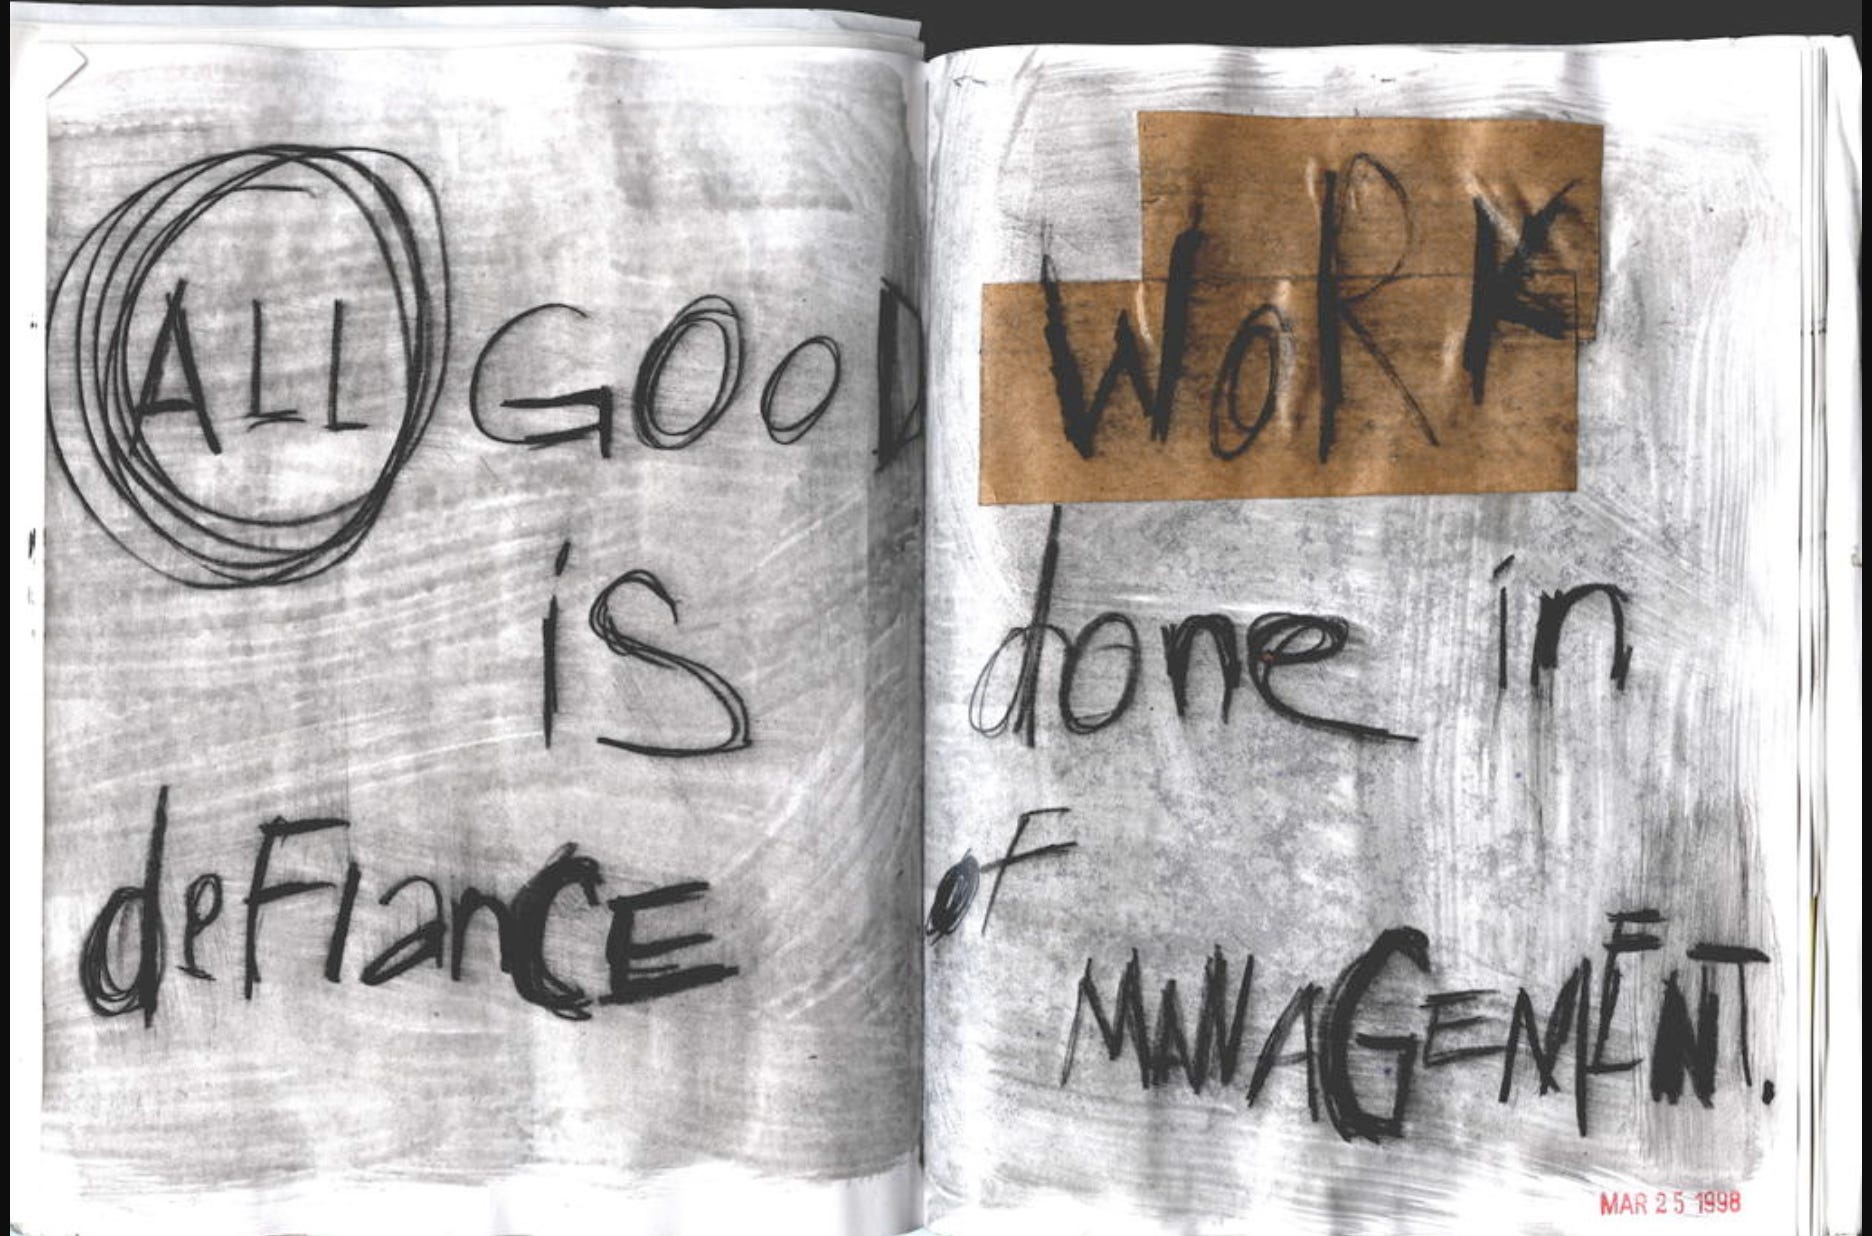 ALL GOOD WORK
is done in
deFiancE oF
MANAGEMENT.
MAR 25 1998